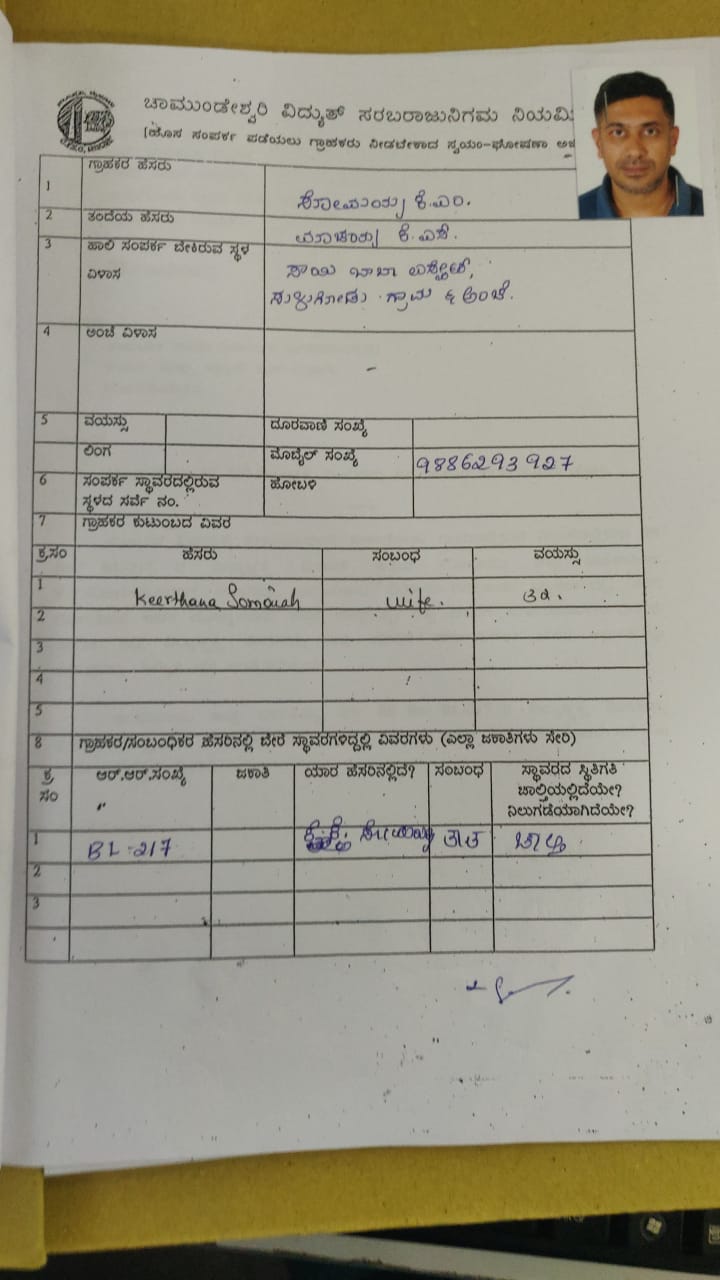 ಚಾಮುಂಡೇಶ್ವರಿ ವಿದ್ಯುತ್ ಸರಬರಾಜುನಿಗಮ
[ಹೊಸ ಸಂಪರ್ಕ ಪಡೆಯಲು ಗ್ರಾಹಕರು ನೀಡಬೇಕಾದ ಸ್ವಯಂ-ಘೋಷಣಾ
1 ಗ್ರಾಹಕರ ಹೆಸರು ಸೋಮಯ್ಯ ಕೆ.ಎಂ.
2 ತಂದೆಯ ಹೆಸರು ಮಾಚಯ್ಯ ಕೆ.ಎಸ್.
3 ಹಾಲಿ ಸಂಪರ್ಕ ಬೇಕಿರುವ ಸ್ಥಳ
ವಿಳಾಸ ಸಾಯಿ ಬಾಬಾ ಎಸ್ಟೇಟ್,
ಗ್ರಾಮ & ಅಂಚೆ.
4 ಅಂಚೆ ವಿಳಾಸ -
5 ವಯಸ್ಸು ದೂರವಾಣಿ ಸಂಖ್ಯೆ
ಲಿಂಗ ಮೊಬೈಲ್ ಸಂಖ್ಯೆ 9886293927
6 ಸಂಪರ್ಕ ಸ್ಥಾವರದಲ್ಲಿರುವ ಹೋಬಳಿ
ಸ್ಥಳದ ಸರ್ವೆ ನಂ.
7 ಗ್ರಾಹಕರ ಕುಟುಂಬದ ವಿವರ
ಕ್ರ.ಸಂ ಹೆಸರು ಸಂಬಂಧ ವಯಸ್ಸು
1 Keerthana Somaiah wife. 32.
2
3
4
5
8 ಗ್ರಾಹಕರ/ಸಂಬಂಧಿಕರ ಹೆಸರಿನಲ್ಲಿ ಬೇರೆ ಸ್ಥಾವರಗಳಿದ್ದಲ್ಲಿ ವಿವರಗಳು (ಎಲ್ಲಾ ಜಕಾತಿಗಳು ಸೇರಿ)
ಕ್ರ ಆರ್.ಆರ್.ಸಂಖ್ಯೆ ಜಕಾತಿ ಯಾರ ಹೆಸರಿನಲ್ಲಿದೆ? ಸಂಬಂಧ ಸ್ಥಾವರದ ಸ್ಥಿತಿಗತಿ
ಸಂ ಚಾಲ್ತಿಯಲ್ಲಿದೆಯೇ?
ನಿಲುಗಡೆಯಾಗಿದೆಯೇ?
1 BL-217 ಸೋಮಯ್ಯ ತಾತ ಚಾಲ್ತಿ
2
3